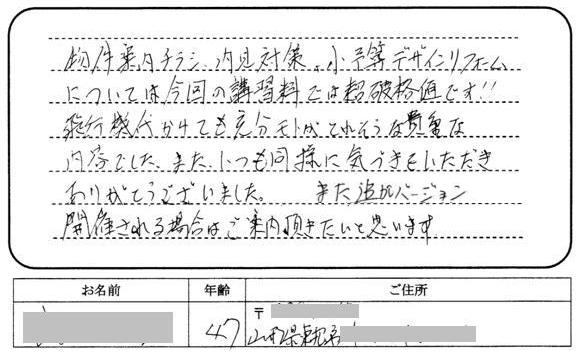 物件案内チラシ、内見対策、小予算デザインリフォーム
については今回の講習料では超破格値です!!
飛行機代かけても充分モトがとれそうな貴重な
内容でした、また、いつも同様に気づきをいただき
ありがとうございました。 また追加バージョン
開催される場合はご案内頂きたいと思います
お名前 年齢 ご住所
〒
47 山口県